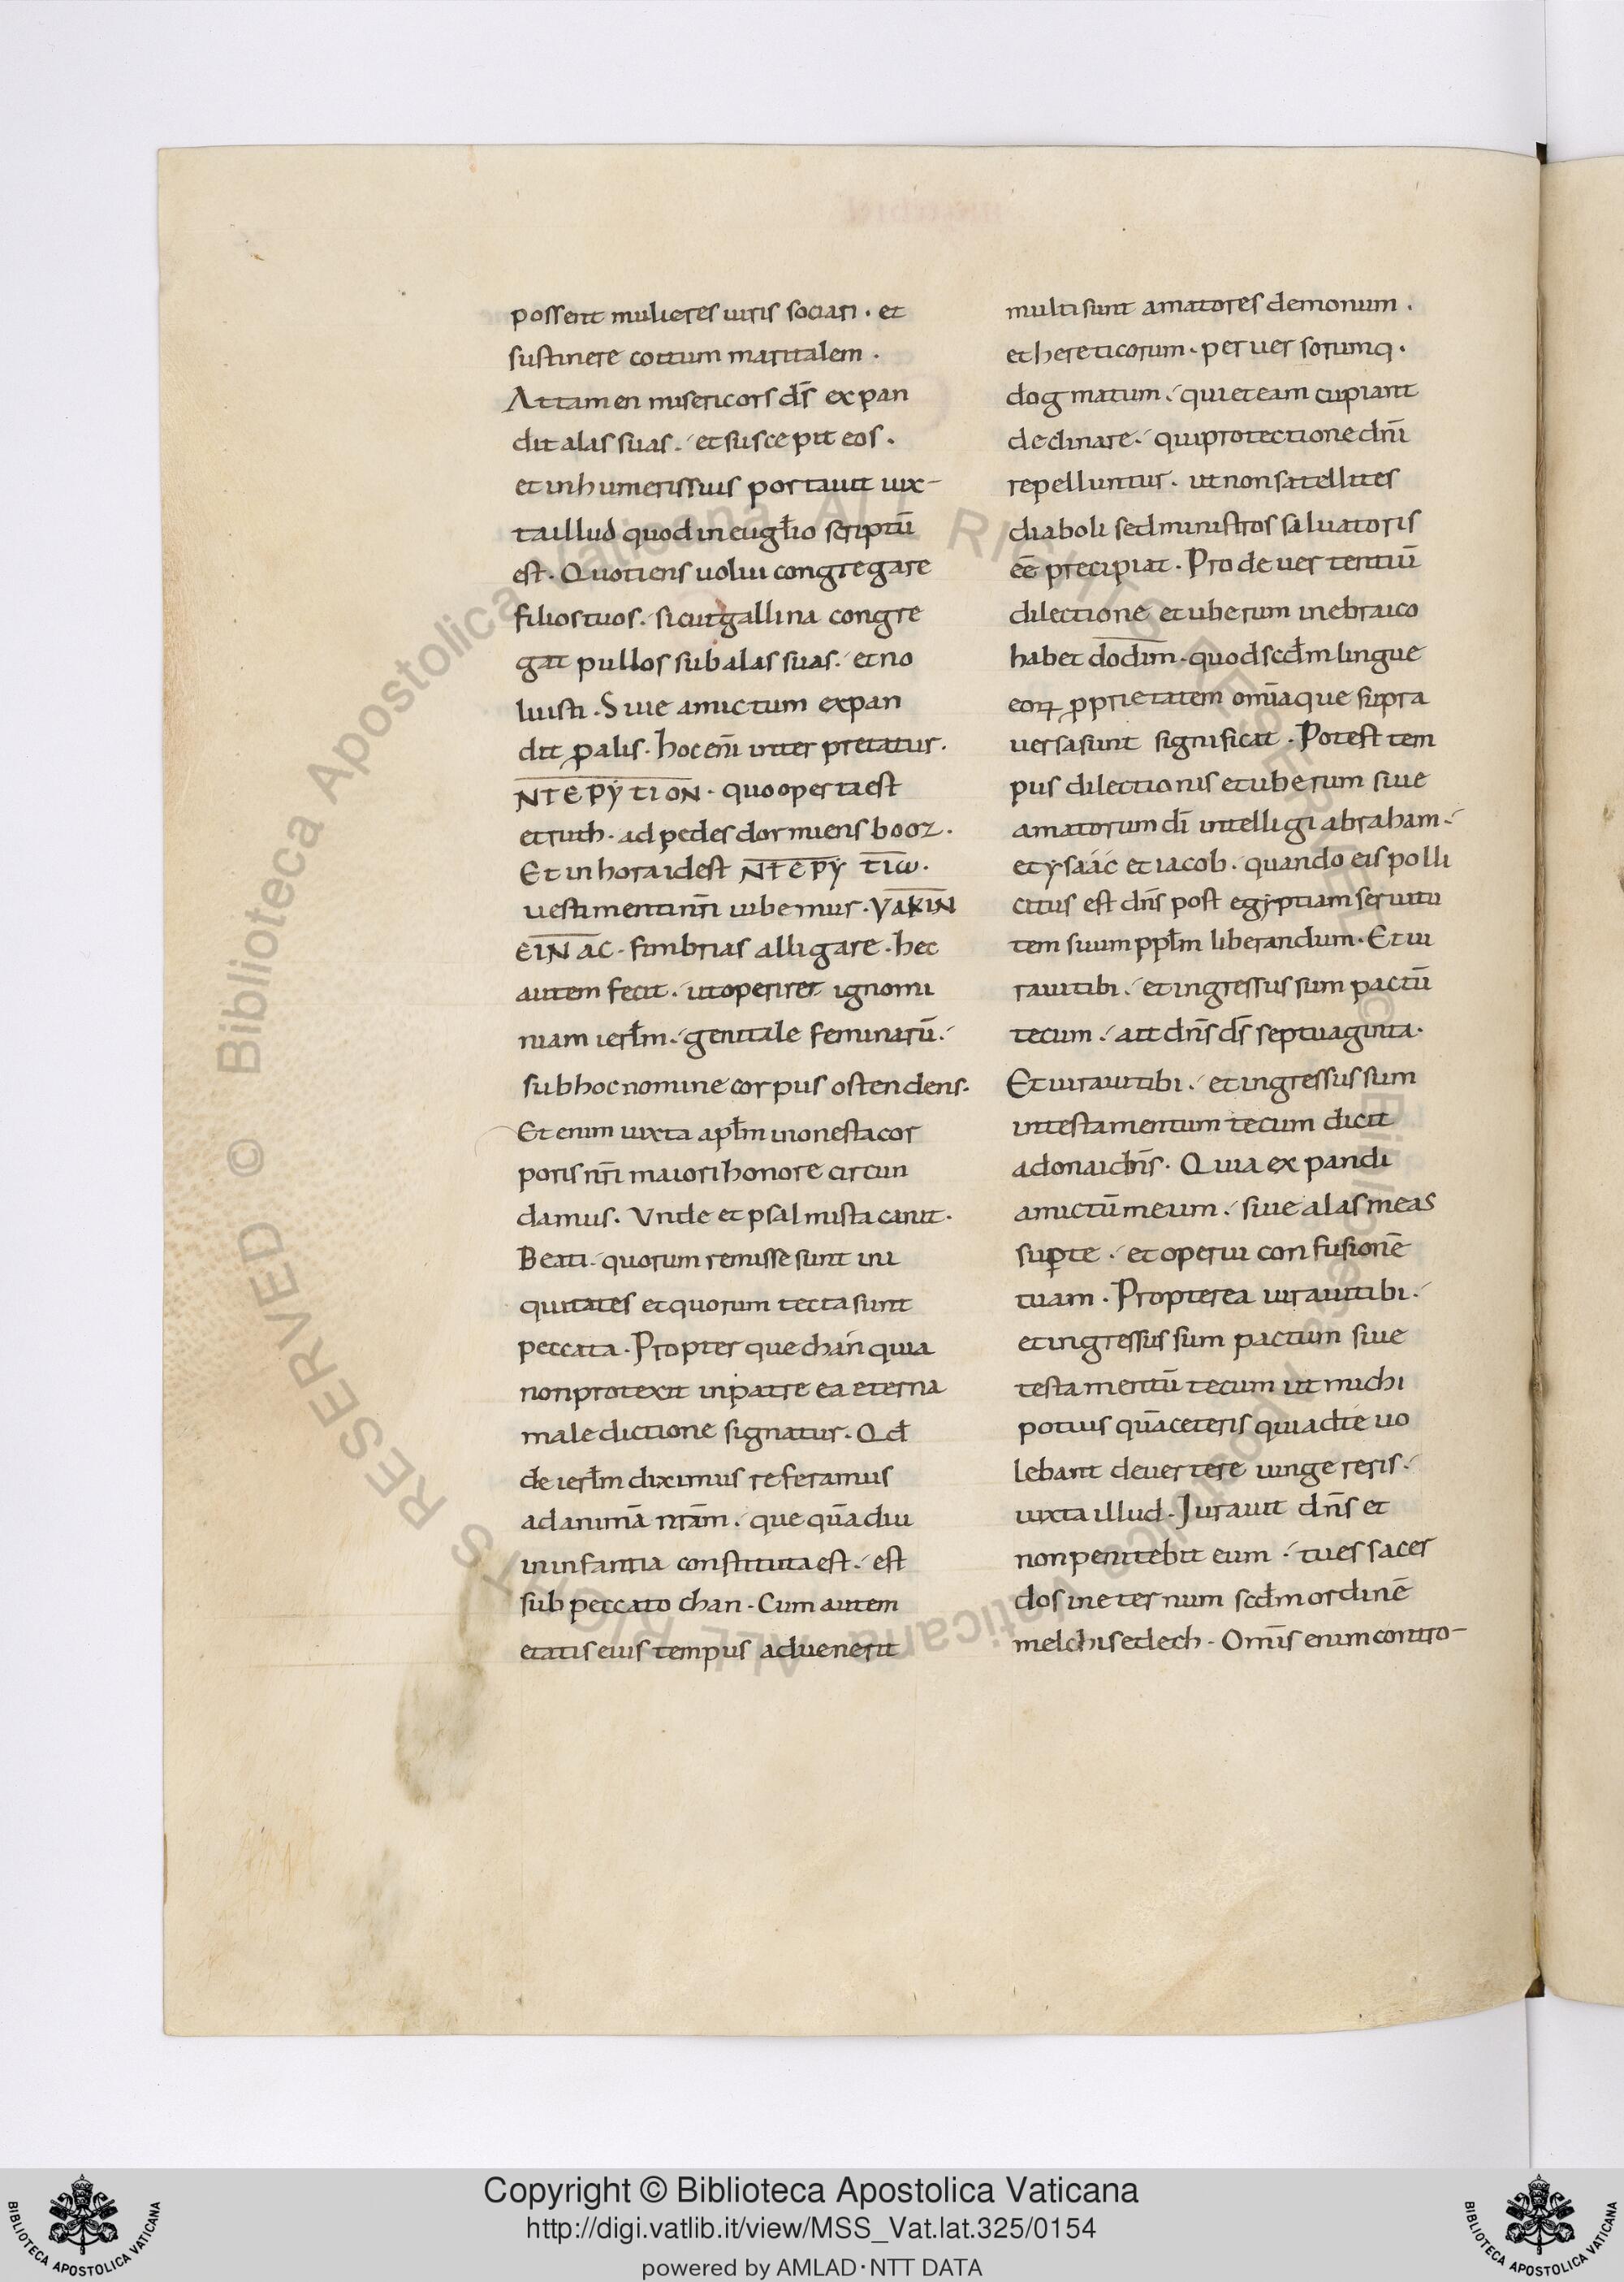 possent mulieres uiris sociari · et
sustinere coitum maritalem ·
Attamen misericors d̅s expan
dit alas suas · et suscepit eos ·
et in humeris suis portauit iux-
ta illud quod in eugl̅io scriptū
est · Quotiens uolui congregare
filios tuos · sicut gallina congre
gat pullos sub alas suas · et no
luisti · Siue amictum expan
dit ꝓ alis · hoc eni̅ interpretatur ·
NTEPYTION · quo operta est
et ruth · ad pedes dormiens booz ·
Et in hora id est NTEPY TIω ·
uestimenti nr̅i iubemur · YAKIN
EINAC · fimbrias alligare · hec
autem fecit · ut operiret ignomi
niam ierl̅m · genitale feminarū ·
sub hoc nomine corpus ostendens ·
Et enim iuxta apl̅m inonesta cor
poris nr̅i maiori honore circun
damus · Vnde et psalmista canit ·
Beati · quorum remisse sunt ini
quitates et quorum tecta sunt
peccata · Propter que chan quia
non protexit in patre ea eterna
maledictione signatur · Qd̅
de ierl̅m diximus referamus
ad animā nr̅am · que quādiu
in infantia constituta est · est
sub peccato chan · Cum autem
etatis eius tempus aduenerit
multi sunt amatores demonum ·
et hereticorum · peruersorumq ·
dogmatum · qui et eam cupiant
declinare · qui protectione dn̅i
repelluntur · ut non satellites
diaboli sed ministros saluatoris
ee̅ precipiat · Pro deuertentiū
dilectione et uberum in ebraico
habet dodim · quod scd̅m lingue
eoꝝ ꝓprietatem omi̅a que supra
uersa sunt significat · Potest tem
pus dilectionis et uberum siue
amatorum di̅ intelligi abraham ·
et ysaac et iacob · quando eis polli
citus est dn̅s post egyptiam seruitu
tem suum ppl̅m liberandum · Et iu
raui tibi · et ingressus sum pactū
tecum · ait dn̅s d̅s septuaginta ·
Et iuraui tibi · et ingressus sum
in testamentum tecum dicit
adonai dn̅s · Quia expandi
amictū meum · siue alas meas
suꝑ te · et operui confusionē
tuam · Propterea iuraui tibi ·
et ingressus sum pactum siue
testamentū tecum ut michi
potius quā ceteris qui ad te uo
lebant deuertere iungereris ·
iuxta illud · Jurauit dn̅s et
non penitebit eum · tu es sacer
dos in eternum scd̅m ordinē
melchisedech · Omi̅s enim contro-
Copyright © Biblioteca Apostolica Vaticana
http://digi.vatlib.it/view/MSS_Vat.lat.325/0154
powered by AMLAD·NTT DATA